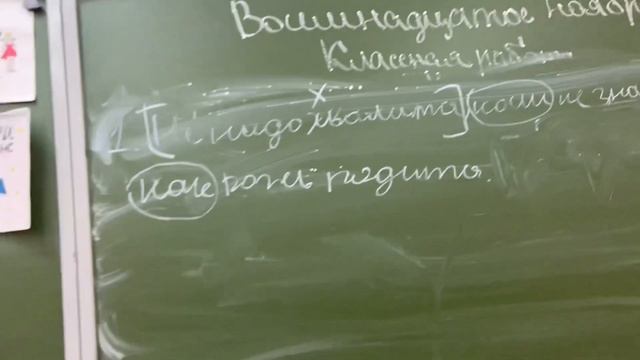 Восемнадцатое ноябр
Классная работ
1 [Не надо хвалится] коли не зна
как рожь родится.